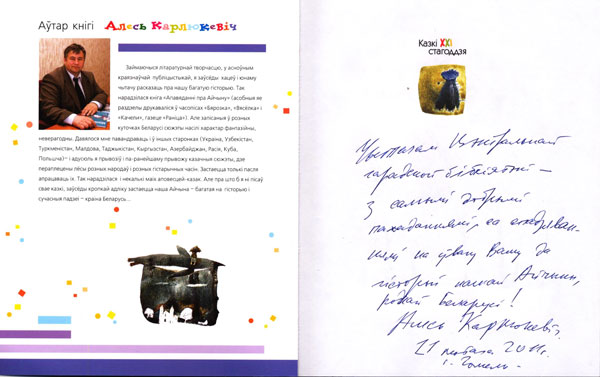 Аўтар кнігі Алесь Карлюкевіч
Займаючыся літаратурнай творчасцю, у асноўным
краязнаўчай публіцыстыкай, я заўсёды хацеў і юнаму
чытачу расказаць пра нашу багатую гісторыю. Так
нарадзілася кніга «Апавяданні пра Айчыну» (асобныя яе
раздзелы друкаваліся ў часопісах «Бярозка», «Вясёлка» і
«Качели», газеце «Раніца»). Але запісаныя ў розных
куточках Беларусі сюжэты насілі характар фантазійны,
неверагодны. Давялося мне павандраваць і ў іншых старонках (Украіна, Узбекістан,
Туркменістан, Малдова, Таджыкістан, Кыргызстан, Азербайджан, Расія, Куба,
Польшча) – і адусюль я прывозіў і па-ранейшаму прывожу казачныя сюжэты, дзе
пераплецены лёсы розных народаў і розных гістарычных часін. Застаецца толькі пасля
апрацаваць іх. Так нарадзілася і некалькі маіх аповесцей-казак. Але пра што б я ні пісаў
свае казкі, заўсёды кропкай адліку застаецца наша Айчына – багатая на гісторыю і
сучасныя падзеі – краіна Беларусь...
Казкі XXI
стагоддзя
Чытачам Цэнтральнай
гарадской бібліятэкі –
з самымі добрымі
пажаданнямі, са спадзяван-
нямі на ўвагу Вашу да
гісторыі нашай Айчыны,
роднай Беларусі!
Алесь Карлюкевіч
21 лютага 2011г.
г. Гомель